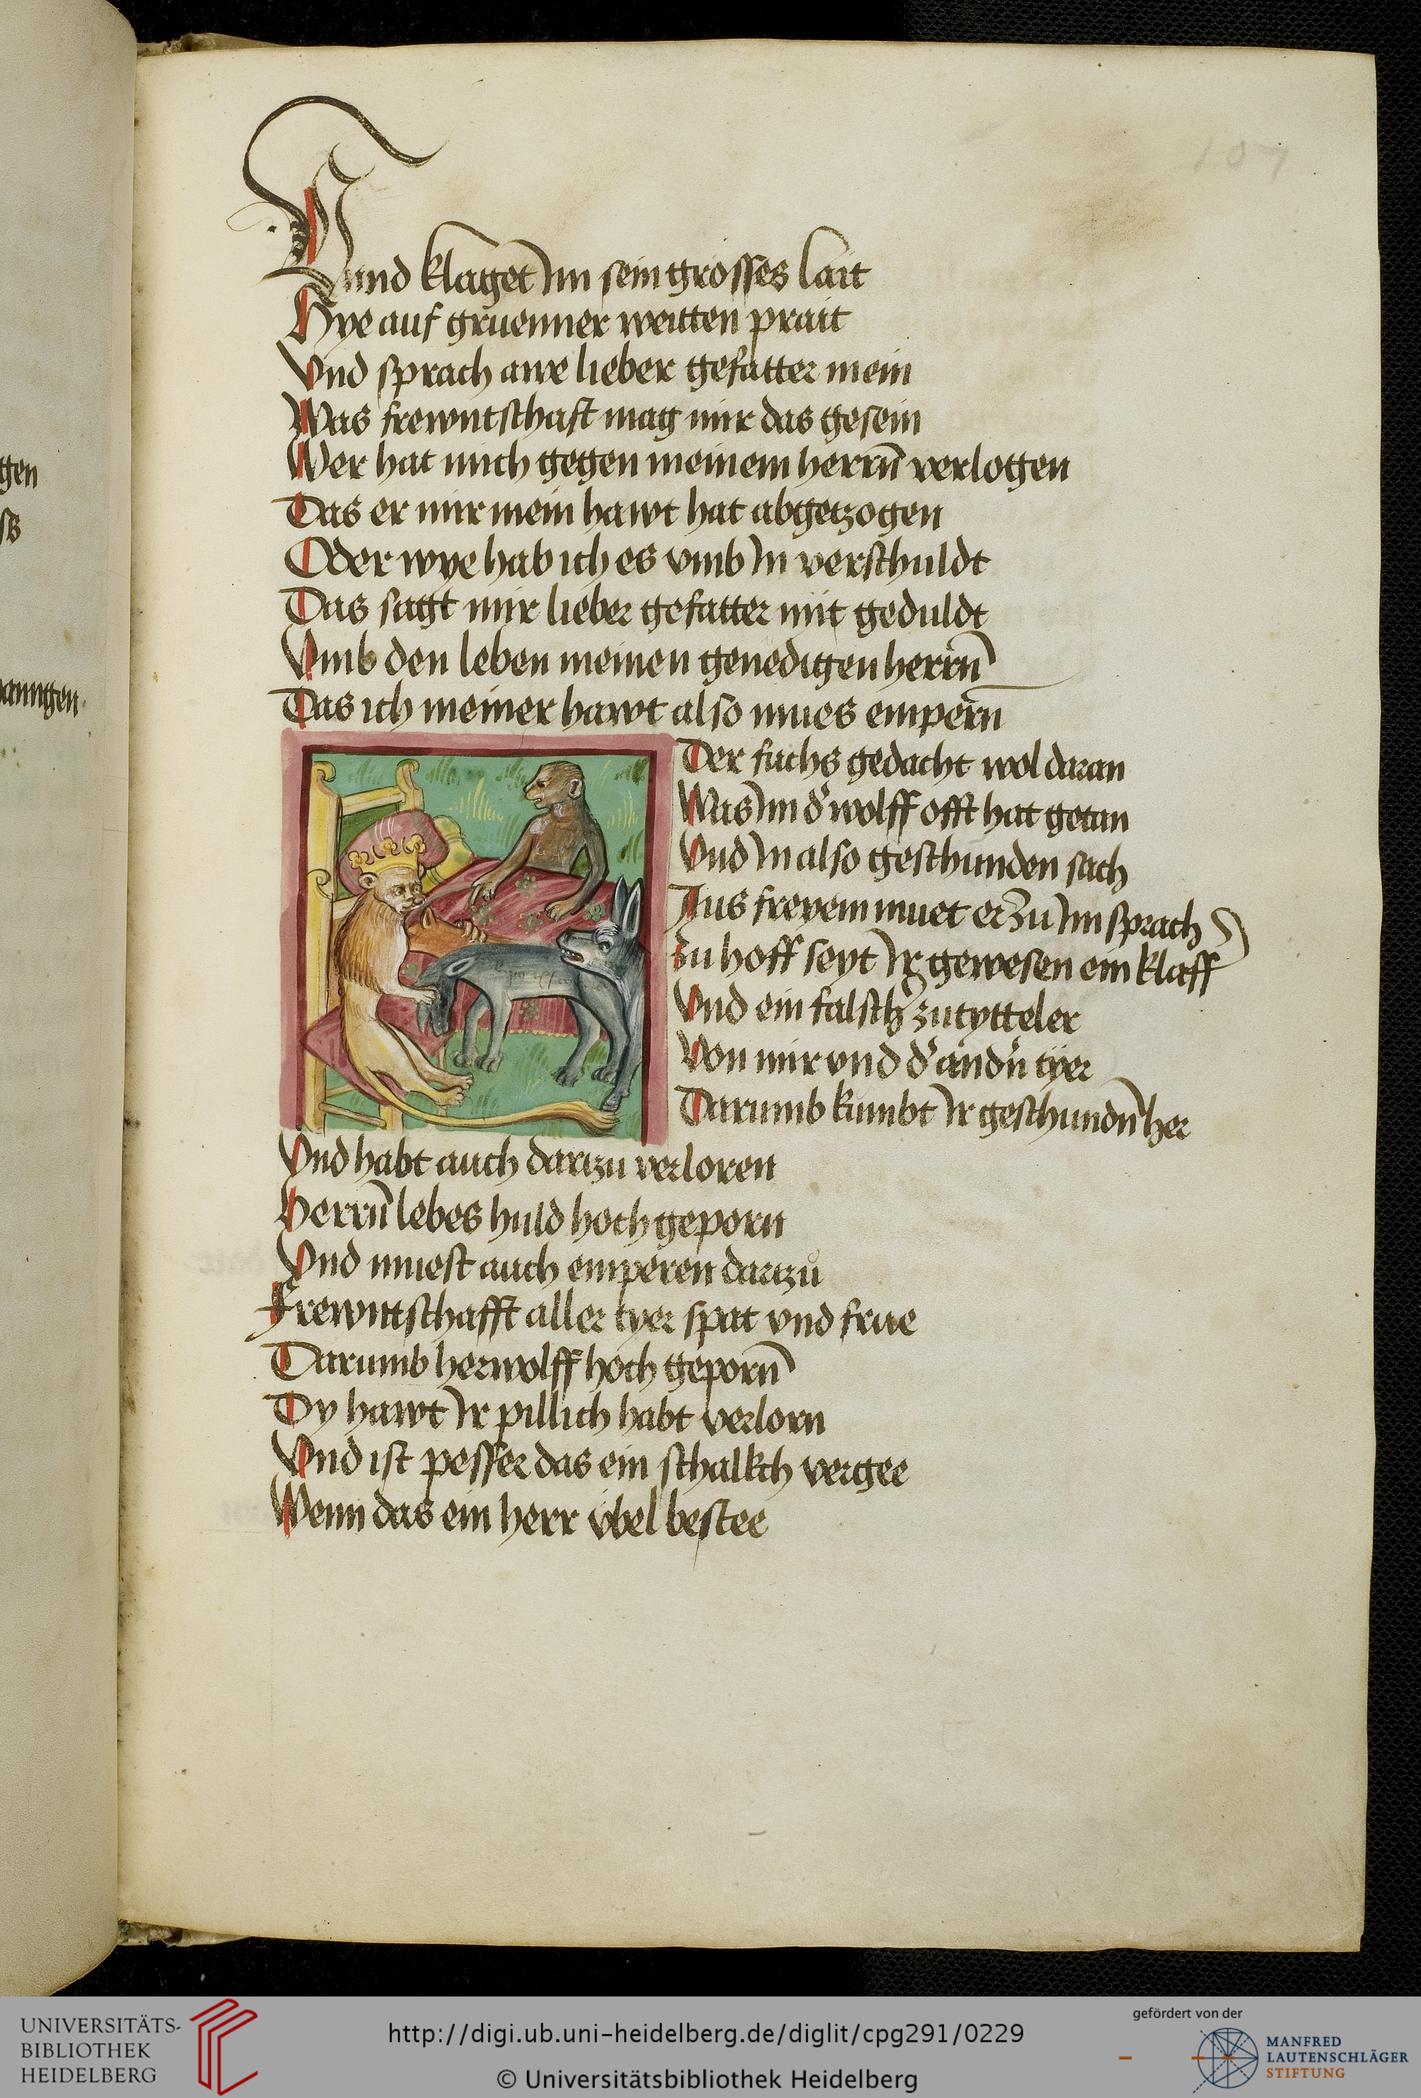 107
Vnnd klaget Im sein grosses lait
Hye auf gruenner weitten prait
Vnd sprach awe lieber gefatter mein
Was frewntschaft mag mir das gesein
Wer hat mich gegen meinem herrn̄ verlogen
Das er mir mein hawt hat abgetzogen
Oder wye hab ich es vmb In verschuldt
Das sagt mir lieber gefatter mit geduldt
Vmb den leben meinen genedigen herrn̄
Das ich meiner hawt also mues empern̄
Der fuchs gedacht wol daran
Was Im d' wolff offt hat getan
Vnd In also geschunden sach
Aus freyem muet er zu Im sprach
Zu hoff seyt Ir gewesen ein klaff
Vnd ein falsch' zutytteler
Von mir vnd d' andn̄ tyer
Darumb kumbt Ir geschundn̄ her
Vnd habt auch dartzu verloren
Herrn̄ lebes huld hoch geporn
Vnd muest auch emperen dartzu
Frewntschafft aller tyer spat vnd frue
Darumb her wolff hoch geporn̄
Dy hawt Ir pillich habt verlorn
Vnd ist pesser das ein schalkch vergee
Wenn das ein herr vbel bestee
gen
UNIVERSITÄTS-
BIBLIOTHEK
HEIDELBERG
http://digi.ub.uni-heidelberg.de/diglit/cpg291/0229
© Universitätsbibliothek Heidelberg
gefördert von der
MANFRED
LAUTENSCHLÄGER
STIFTUNG